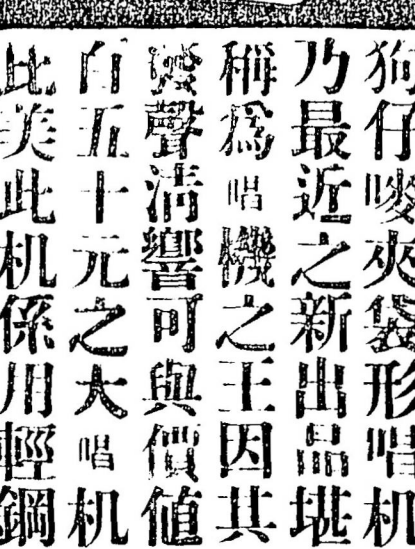 狗仔嘜夾袋形唱机
乃最近之新出品堪
稱為唱機之王因其
發聲清響可與價值
百五十元之大唱机
比美此机係用輕鋼